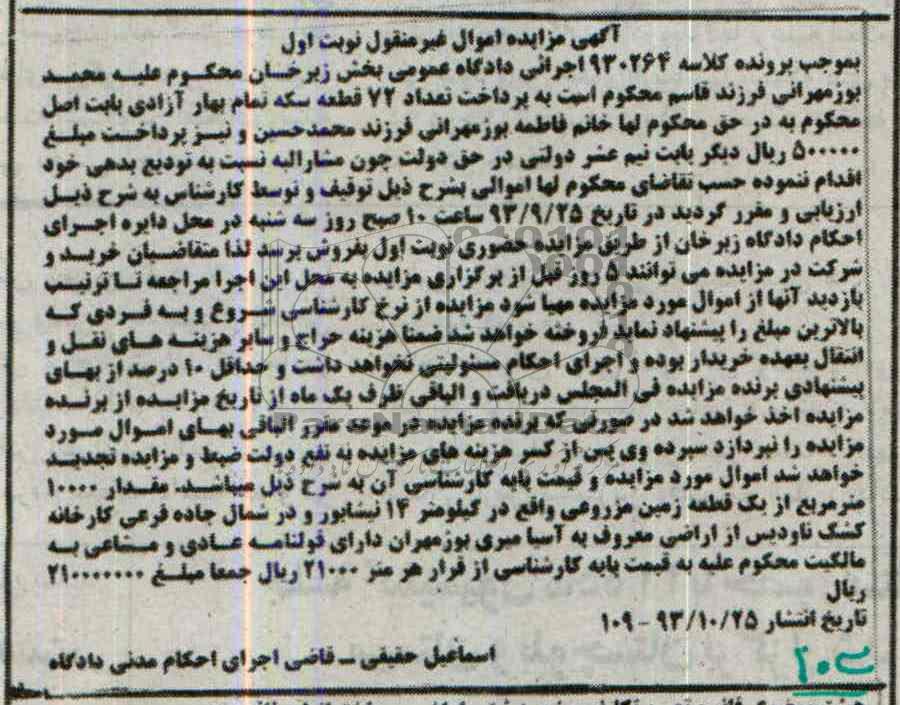 آگهی مزایده اموال غیرمنقول نوبت اول
بموجب پرونده کلاسه ۹۳۰۲۶۴ اجرائی دادگاه عمومی بخش زبرخان محکوم علیه محمد
بوژمهرانی فرزند قاسم محکوم است به پرداخت تعداد ۷۲ قطعه سکه تمام بهار آزادی بابت اصل
محکوم به در حق محکوم لها خانم فاطمه بوژمهرانی فرزند محمدحسین و نیز پرداخت مبلغ
۵۰۰۰۰۰ ریال دیگر بابت نیم عشر دولتی در حق دولت چون مشارالیه نسبت به تودیع بدهی خود
اقدام ننموده حسب تقاضای محکوم لها اموالی بشرح ذیل توقیف و توسط کارشناس به شرح ذیل
ارزیابی و مقرر گردید در تاریخ ۹۳/۹/۲۵ ساعت ۱۰ صبح روز سه شنبه در محل دایره اجرای
احکام دادگاه زبرخان از طریق مزایده حضوری نوبت اول بفروش برسد لذا متقاضیان خرید و
شرکت در مزایده می توانند ۵ روز قبل از برگزاری مزایده به محل این اجرا مراجعه تا ترتیب
بازدید آنها از اموال مورد مزایده مهیا شود مزایده از نرخ کارشناسی شروع و به فردی که
بالاترین مبلغ را پیشنهاد نماید فروخته خواهد شد ضمنا هزینه حراج و سایر هزینه های نقل و
انتقال بعهده خریدار بوده و اجرای احکام مسئولیتی نخواهد داشت و حداقل ۱۰ درصد از بهای
پیشنهادی برنده مزایده فی المجلس دریافت و الباقی ظرف یک ماه از تاریخ مزایده از برنده
مزایده اخذ خواهد شد در صورتی که برنده مزایده در موعد مقرر الباقی بهای اموال مورد
مزایده را نپردازد سپرده وی پس از کسر هزینه های مزایده به نفع دولت ضبط و مزایده تجدید
خواهد شد اموال مورد مزایده و قیمت پایه کارشناسی آن به شرح ذیل میباشد. مقدار ۱۰۰۰۰
مترمربع از یک قطعه زمین مزروعی واقع در کیلومتر ۱۴ نیشابور و در شمال جاده فرعی کارخانه
کشک ناودیس از اراضی معروف به آسیا میری بوژمهران دارای قولنامه عادی و مشاعی به
مالکیت محکوم علیه به قیمت پایه کارشناسی از قرار هر متر ۲۱۰۰۰ ریال جمعا مبلغ ۲۱۰۰۰۰۰۰۰
ریال
تاریخ انتشار ۹۳/۱۰/۲۵ - ۱۰۹
اسماعیل حقیقی ــ قاضی اجرای احکام مدنی دادگاه
ParsNamadData